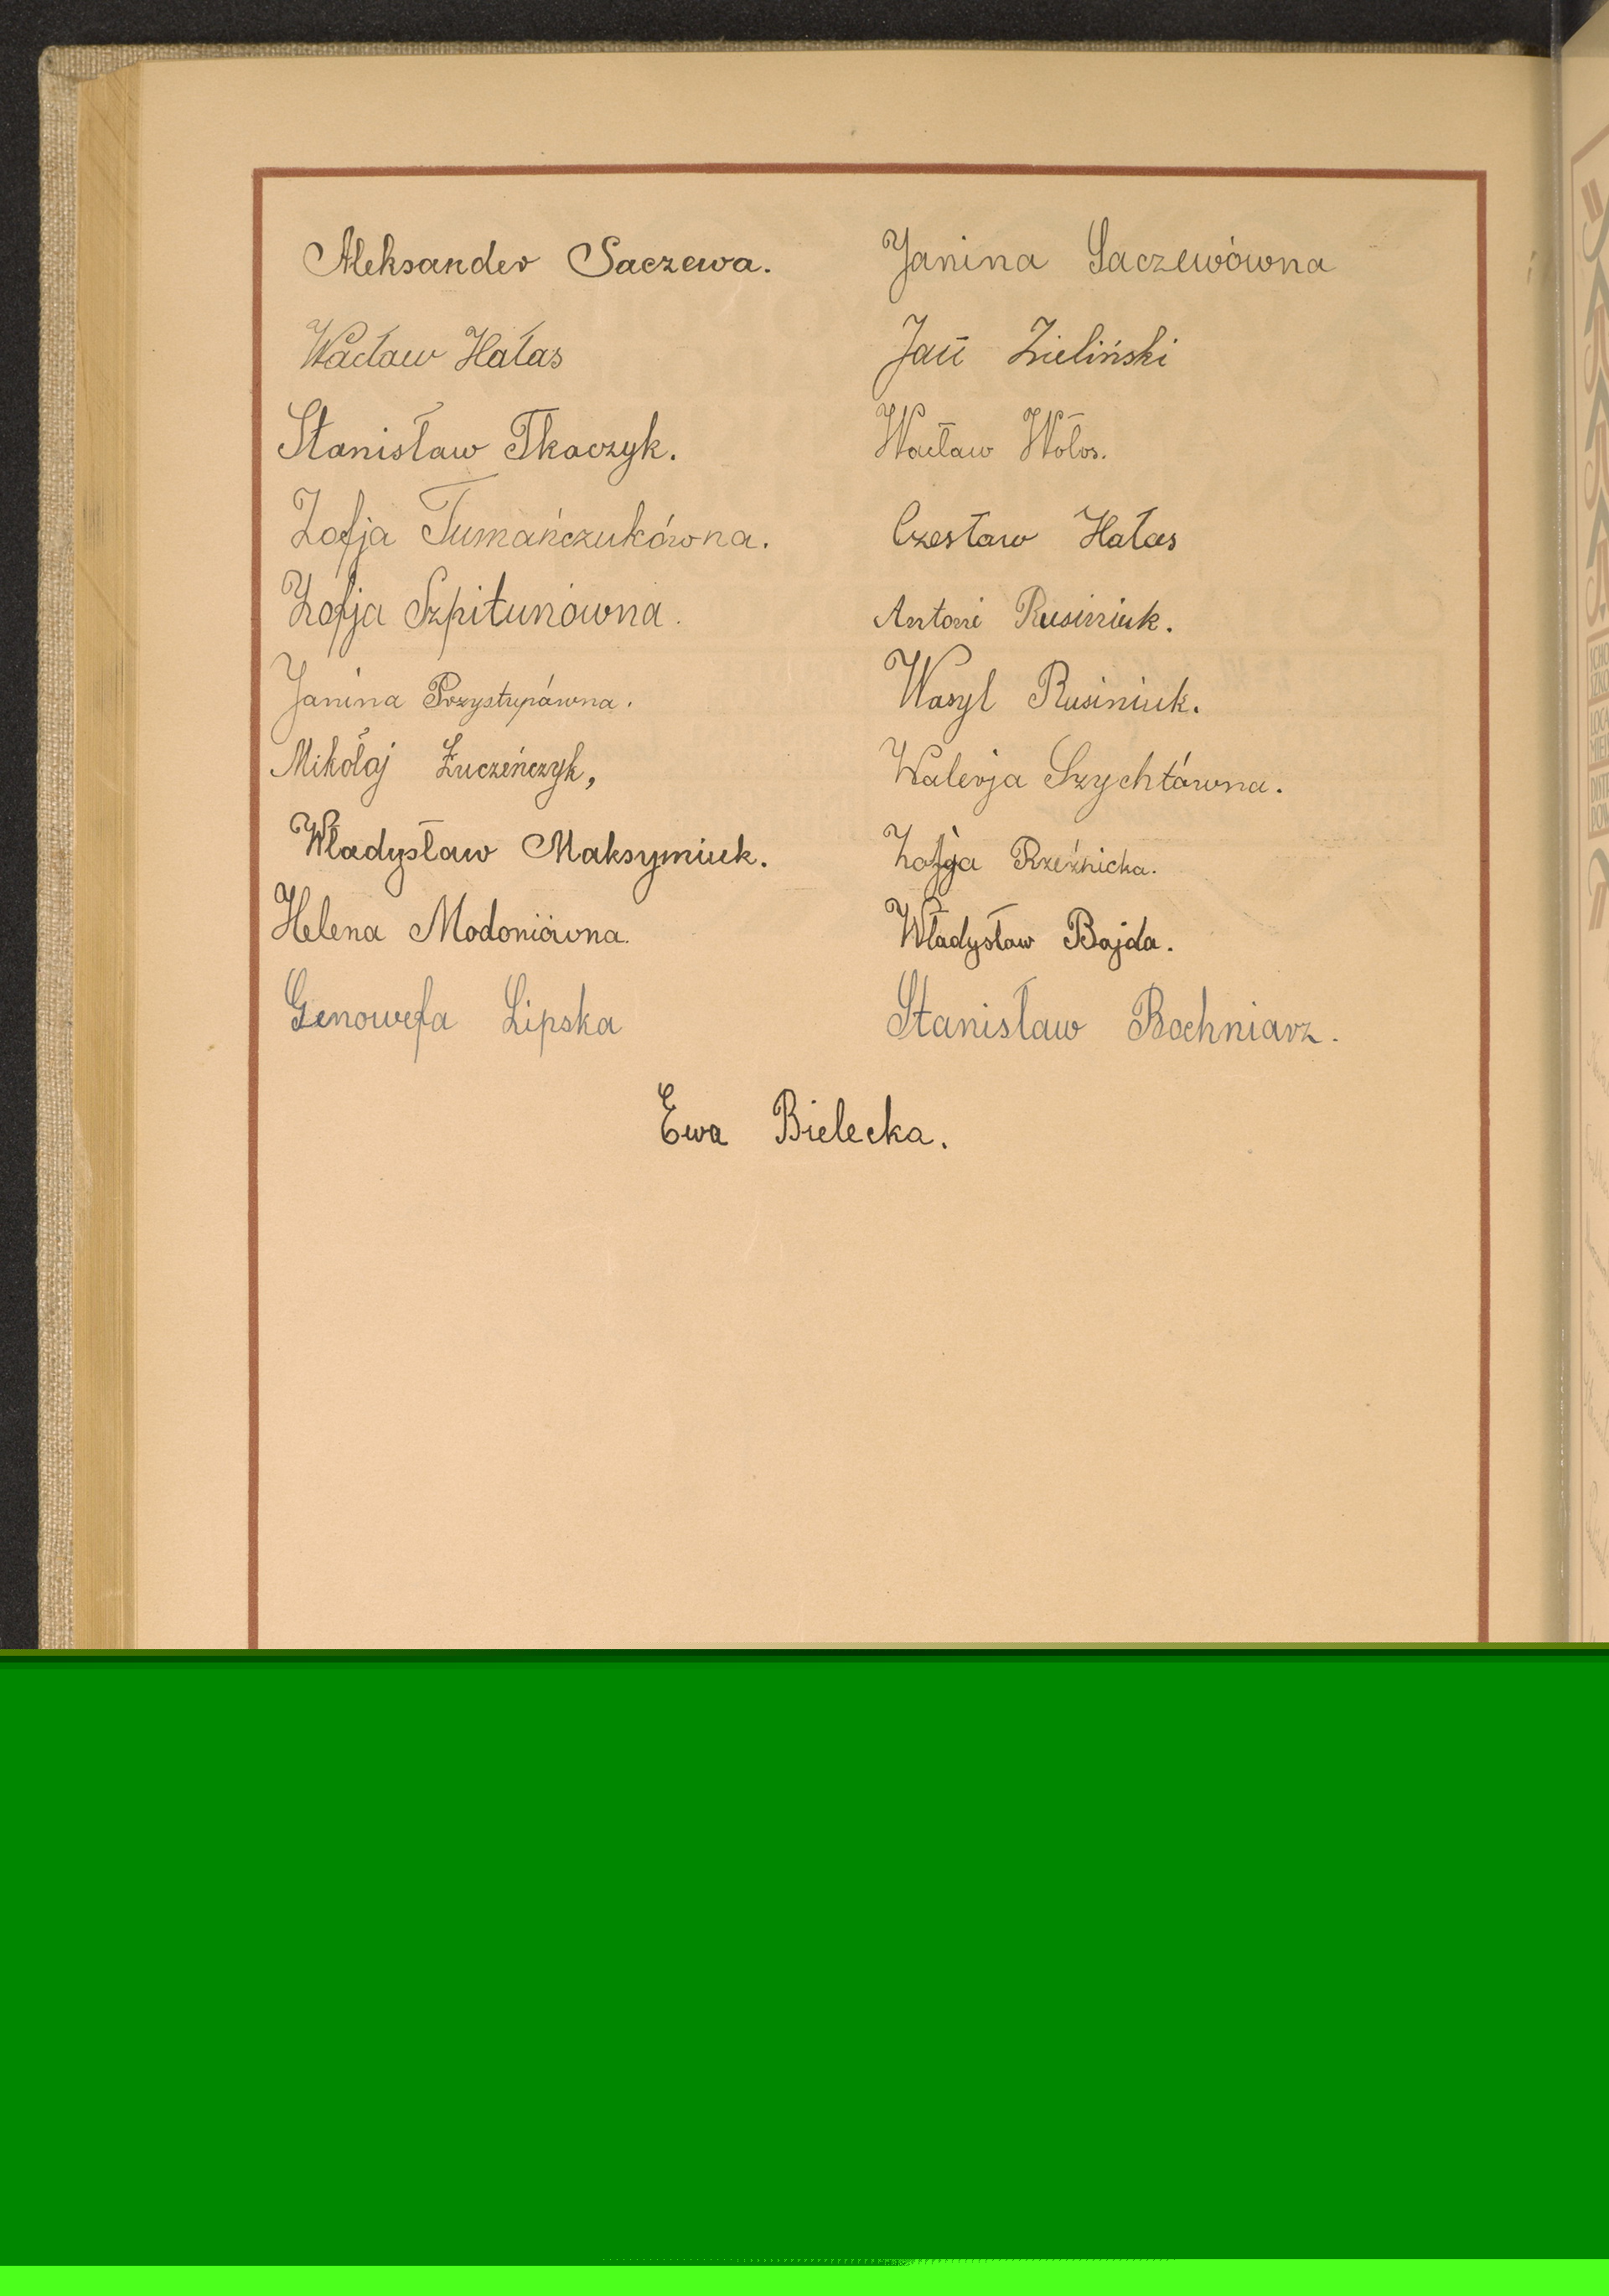 Aleksander Saczewa.
Wacław Hałas
Stanisław Tkaczyk.
Zofja Tumańczukówna.
Zofja Szpitunówna.
Janina Przystupówna.
Mikołaj Łuczeńczyk,
Władysław Maksymiuk.
Helena Modoniówna.
Genowefa Lipska
Janina Saczewówna
Jan Zieliński
Wacław Wołos.
Czesław Hałas
Antoni Rusiniuk.
Wasyl Rusiniuk.
Walerja Szychtówna.
Zofja Rzeźnicka.
Władysław Bajda.
Stanisław Bochniarz.
Ewa Bielecka.